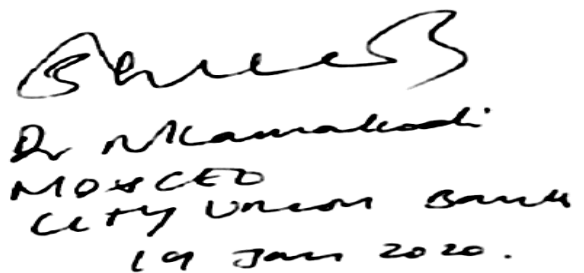 Dr N Kamakodi
MD & CEO
City Union Bank
19 Jan 2020.